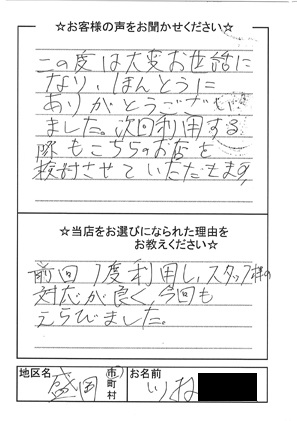 ☆お客様の声をお聞かせください☆
この度は大変お世話に
なり、ほんとうに
ありがとうござい
ました。次回利用する
際もこちらのお店を
検討させていただきます。
☆当店をお選びになられた理由を
お教えください☆
前回1度利用し、スタッフ様の
対応が良く、今回も
えらびました。
地区名 盛岡 市町村 お名前